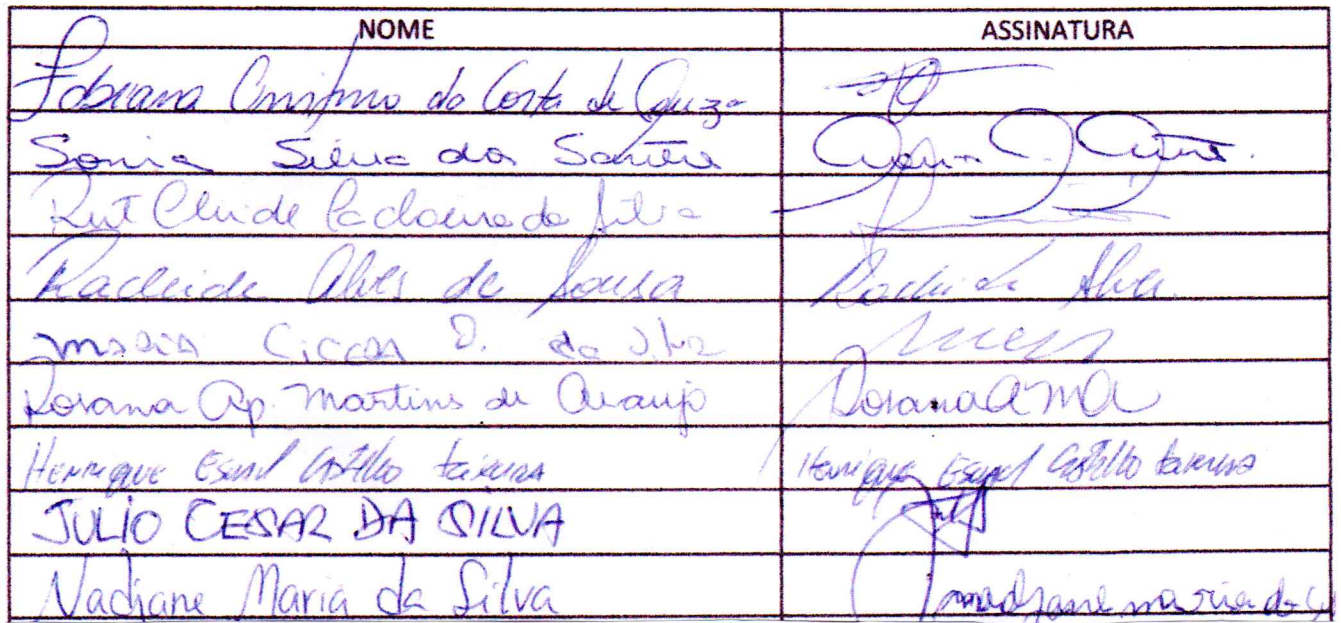 NOME ASSINATURA
Fabiana da Costa de Souza
Sonia Silva dos Santos
Rut Cleide Cachoeira da Silva
Racleide Alves de Sousa Racleide Alves
Maria Cicera D. da Silva
Rosana Ap. Martins de Araujo Rosana AMA
Henrique Castilho teixeira Henrique Castilho teixeira
JULIO CESAR DA SILVA
Nadjane Maria da Silva nadjane maria da S